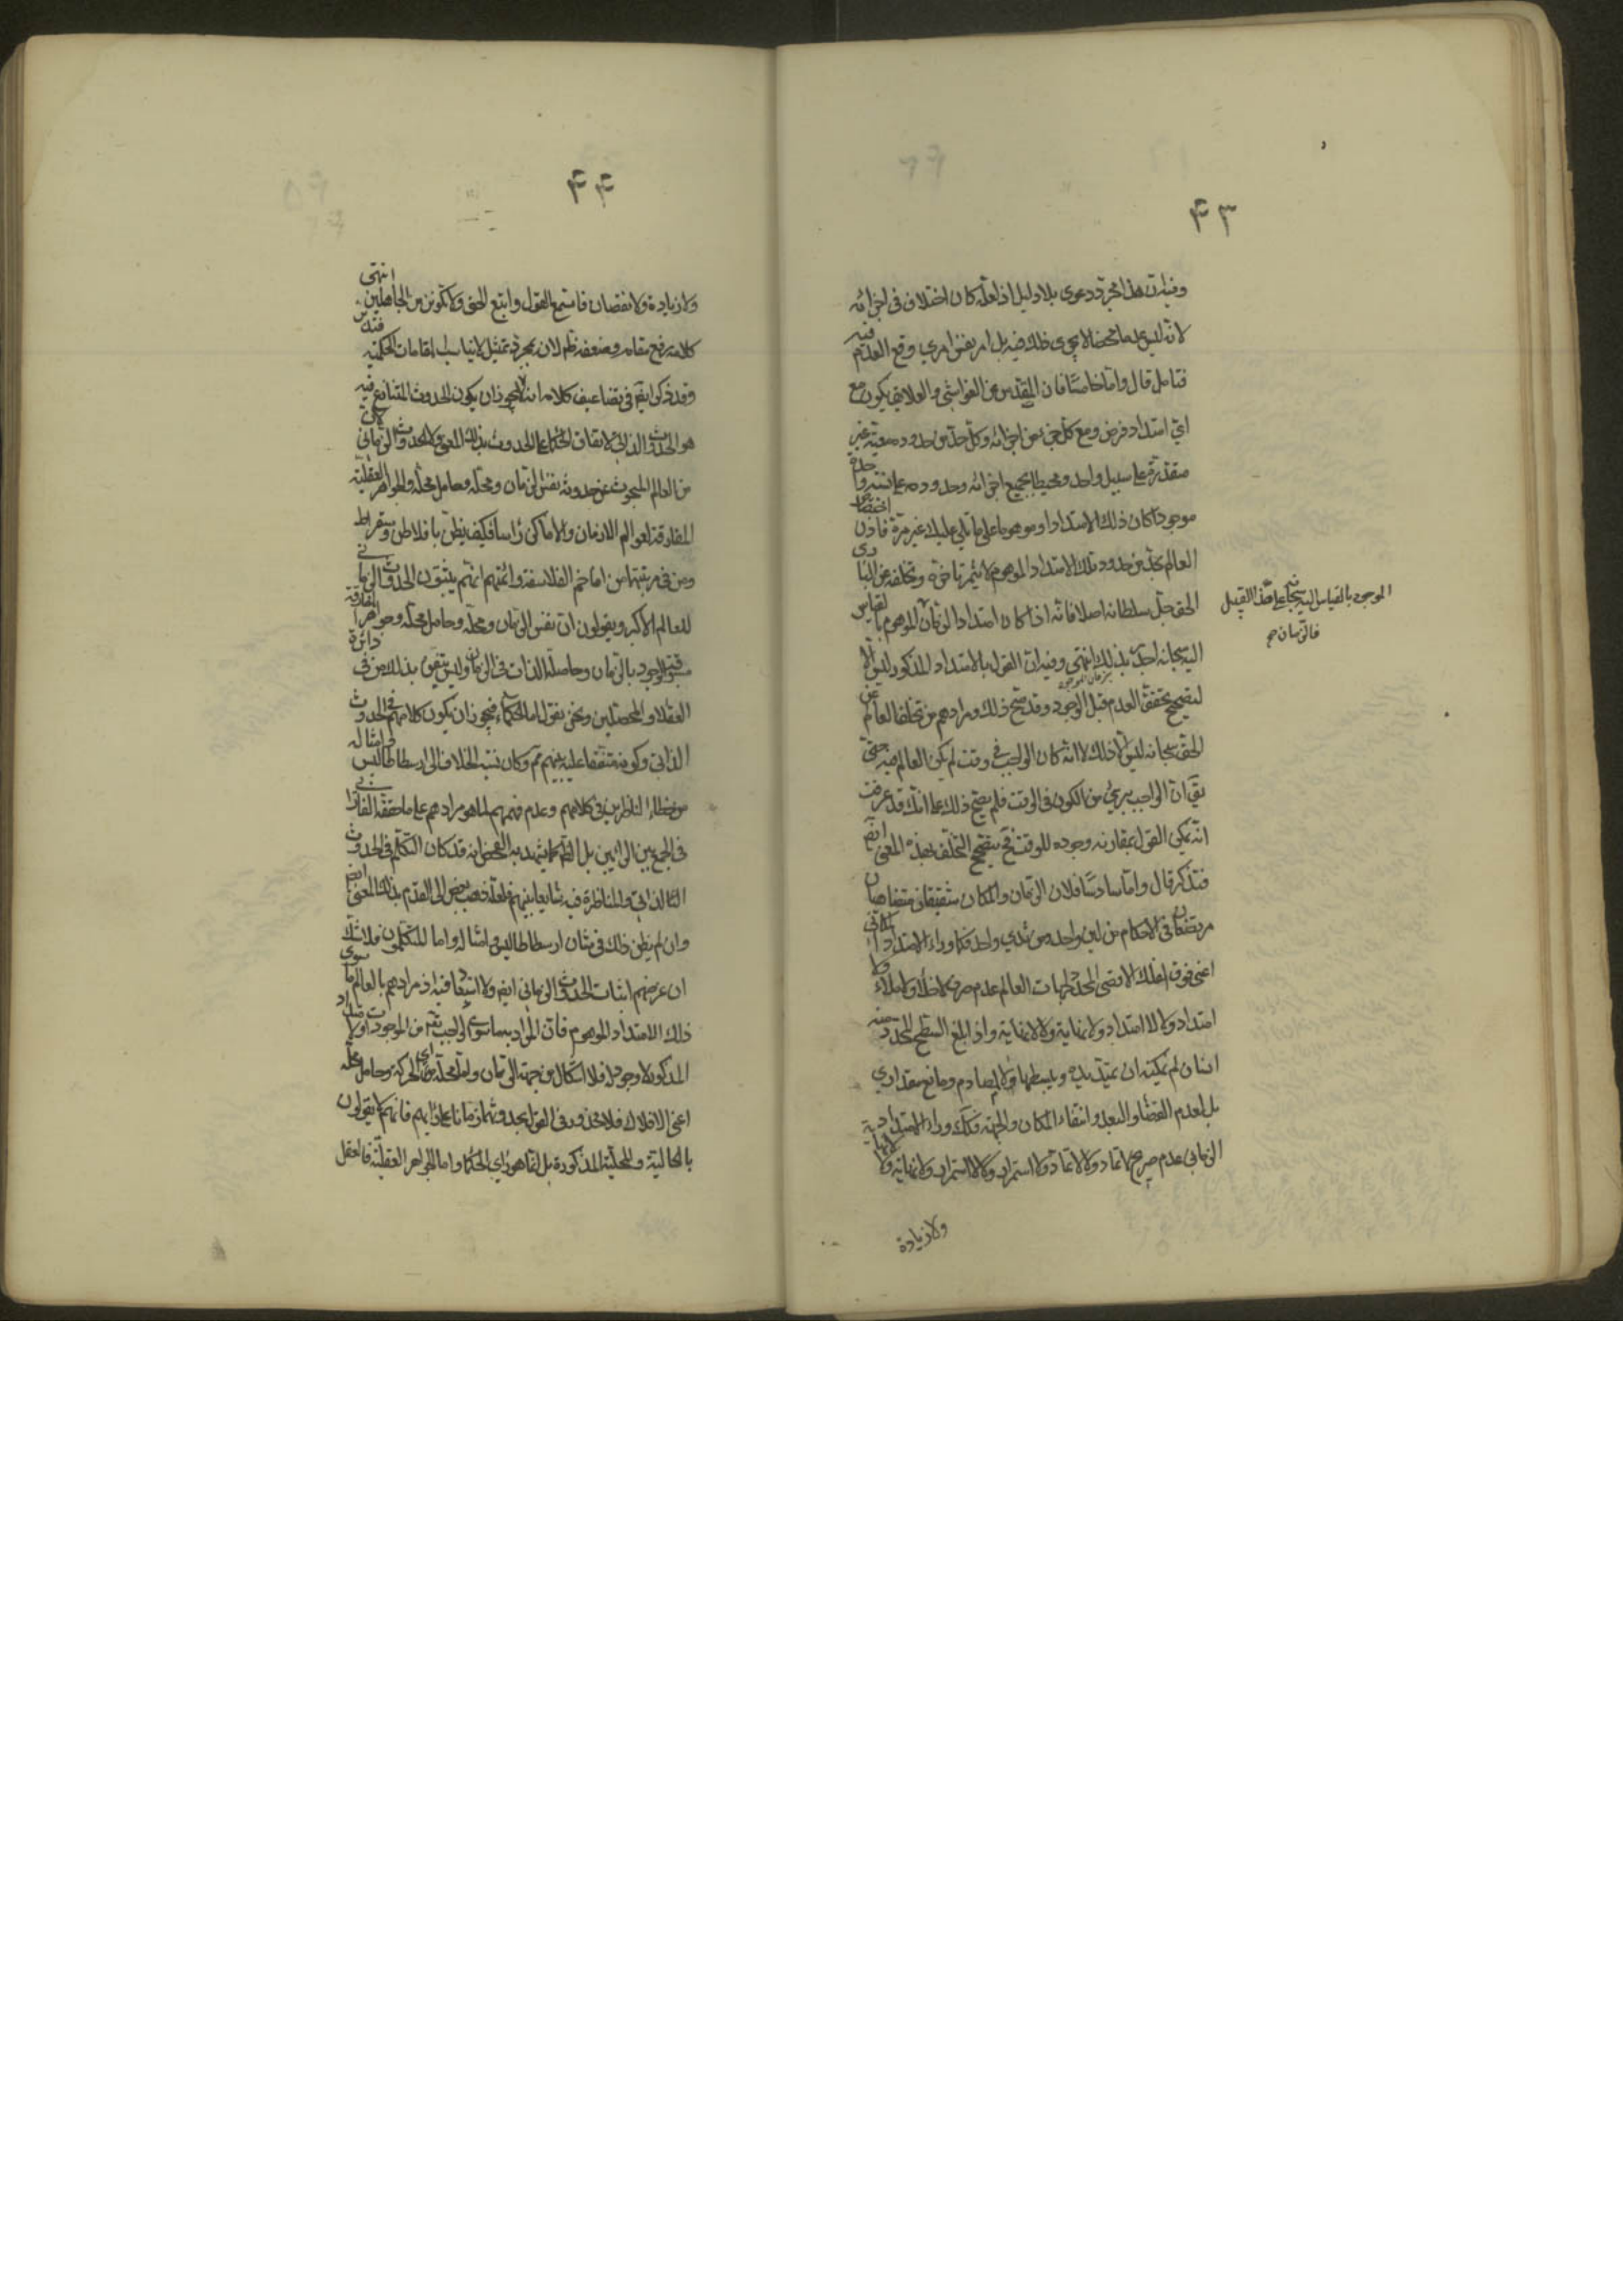 ۴۳
وفيه ان هذا مجرد دعوى بلا دليل اذ لعله كان اختلاف فى اجزائه
لانه ليس عدما محضا لا يجرى ذلك فيه بل امر نفس امرى وقع العدم فيه
فتامل قال واما خامسا فان المقدس عن الغواشى والعلايق يكون مع
اى امتداد فرض ومع كل جزء من اجزائه وكل حد من حدوده معية غير
متقدرة على سبيل واحد ومحيطا بجميع اجزائه وحدوده على نسبة واحدة
موجودا كان ذلك الامتداد او موهوما على ما تلى عليك غير مرة فاذن اختصاص
العالم بحد من حدود ذلك الامتداد الموهوم لا يثمر تاخره وتخلفه عن البارى
الحق جل سلطانه اصلا فانه اذا كان امتداد الزمان الموهوم بالقياس
الموجود بالقياس اليه سبحانه على هذا القبيل
فالزمان
اليه سبحانه احق بذلك انتهى وفيه ان القول بالامتداد المذكور ليس الا
لتصحيح تحقق العدم قبل الوجود وقد صح ذلك ومرادهم من تخلف العالم عن
الحق سبحانه ليس الا ذلك لا انه كان الواجب فى وقت لم يكن العالم فيه حتى
يق ان الواجب برىء من الكون فى الوقت فلم يصح ذلك على انك قد عرفت
انه يمكن القول بمقارنة وجوده للوقت فح يصح التخلف بهذا المعنى ايضا
فتذكر قال واما سادسا فلان الزمان والمكان شقيقان متضاهيان
مرتضعان فى الاحكام من لبن واحد من ثدى واحد فكما وراء الامتداد المكانى
اعنى فوق الفلك الاقصى المحدد لجهات العالم عدم صرف لا خلأ ولا ملاء ولا
امتداد ولا لا امتداد ولا نهاية ولا لا نهاية واذا بلغ السطح المحدد منه
انسان لم يمكنه ان يمد يده ويبسطها لا لمصادم ومانع مقدارى
بل لعدم الفضا والبعد وانتفاء المكان والجهة فكك وراء الامتداد
الزمانى عدم صريح لا تماد ولا لا تماد ولا استمرار ولا لا استمرار ولا نهاية ولا لا نهاية
ولا زيادة
۴۴
ولا زيادة ولا نقصان فاستمع القول واتبع الحق ولا تكونن من الجاهلين انتهى
كلامه رفع مقامه وضعفه ظاهر لان مجرد تمثيل لا يناسب المقامات الحكمية
وقد ذكر ايضا فى تضاعيف كلامه انه لا يجوز ان يكون الحدوث المتنازع فيه
هو الحدوث الذاتى لاتفاق الحكما على الحدوث بذلك المعنى ولا الحدوث الزمانى
من العالم المبحوث عن حدوثه نفس الزمان ومحله وحامل محله والجواهر العقلية
المفارقة لعوالم الازمان والاماكن رأسا فكيف يظن بافلاطن وسقراط
ومن فى مرتبتهما من افاخم الفلاسفة وائمتهم انهم يثبتون الحدوث الزمانى
للعالم الاكبر ويقولون ان نفس الزمان ومحله وحامل محله وجواهر المفارقة
مسبوقة الوجود بالزمان وحاصلة الذات فى الزمان وليس يتفوه بذلك من فى دائرة
العقلاء والمحصلين ونحن نقول اما الحكماء فيجوز ان يكون كلامهم فى الحدوث
الذاتى وكونه متفقا عليه بينهم ثم وكان نسبة الخلاف الى ارسطاطاليس وامثاله
من خطاء الناظرين فى كلامهم وعدم فهمهم لما هو مرادهم على ما حققه الفارابى
فى الجمع بين الرائين بل الظاهر كما يشهد به الفحص انه قد كان التكلم فى الحدوث
الذاتى والمناظرة فيه شايعا بينهم فلعله ذهب بعض الى القدم بذلك المعنى ايضا
وان لم يظن ذلك فى شان ارسطاطاليس وامثاله واما المتكلمون فلا شك
ان غرضهم اثبات الحدوث الزمانى ايضا ولا استبعاد فيه اذ مرادهم بالعالم ما سوى
ذلك الامتداد الموهوم فان المراد بما سوى الواجب تعالى من الموجودات والامتداد
المذكور لا وجود له فلا اشكال من جهة الزمان واما محله اى الحركة وحامل محله
اعنى الافلاك فلا محذور فى القول بحدوثهما زمانا على رايهم فانهم لا يقولون
بالحالية والمحلية المذكورة بل انما هو راى الحكما واما الجواهر العقلية فالعقل